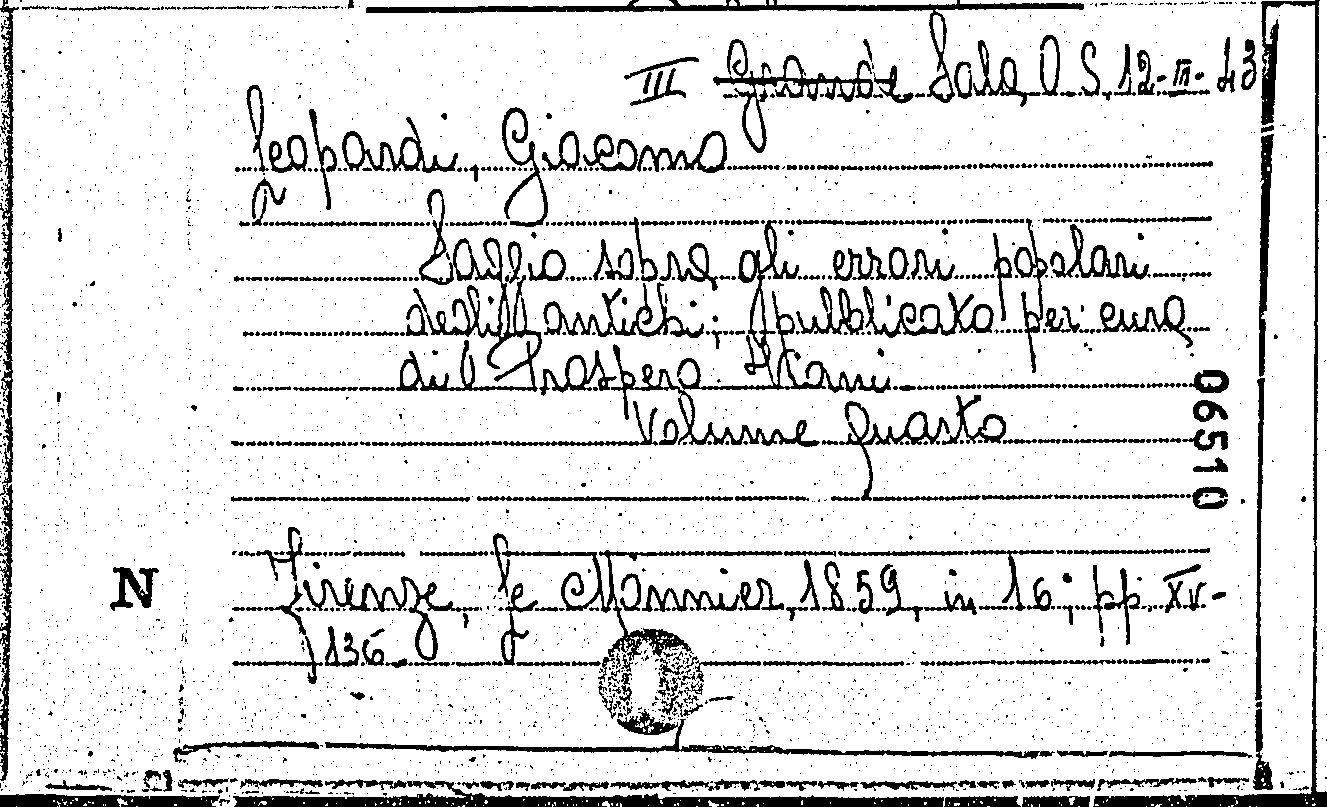 III Grande Sala O. S. 12-III-43
Leopardi, Giacomo
Saggio sopra gli errori popolari
degli antichi; pubblicato per cura
di Prospero Viani.
Volume quarto
06510
N
Firenze, Le Monnier, 1859, in 16; pp. XV-
136.